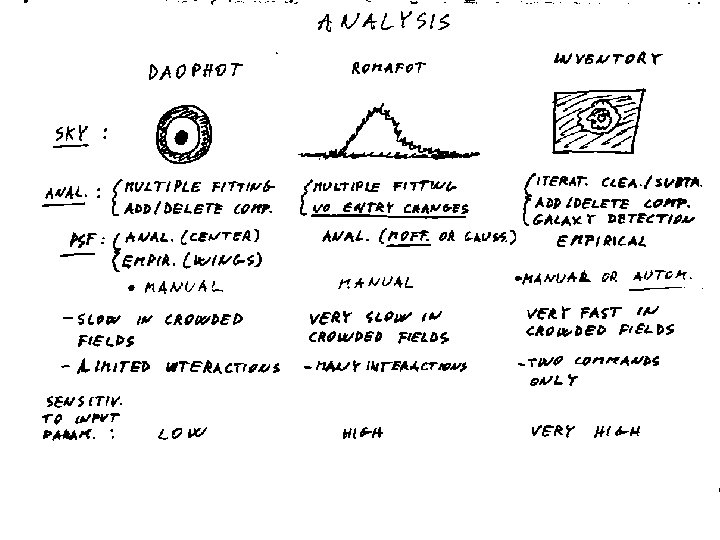 ANALYSIS
DAOPHOT ROMAFOT INVENTORY
SKY :
ANAL. : MULTIPLE FITTING MULTIPLE FITTING ITERAT. CLEA./SUBTR.
ADD/DELETE COMP. NO ENTRY CHANGES ADD/DELETE COMP.
GALAXY DETECTION
PSF : ANAL. (CENTER) ANAL. (MOFF. OR GAUSS.) EMPIRICAL
EMPIR. (WINGS)
• MANUAL MANUAL • MANUAL OR AUTOM.
- SLOW IN CROWDED VERY SLOW IN VERY FAST IN
FIELDS CROWDED FIELDS CROWDED FIELDS
- LIMITED INTERACTIONS - MANY INTERACTIONS - TWO COMMANDS
ONLY
SENSITIV.
TO INPUT
PARAM. : LOW HIGH VERY HIGH